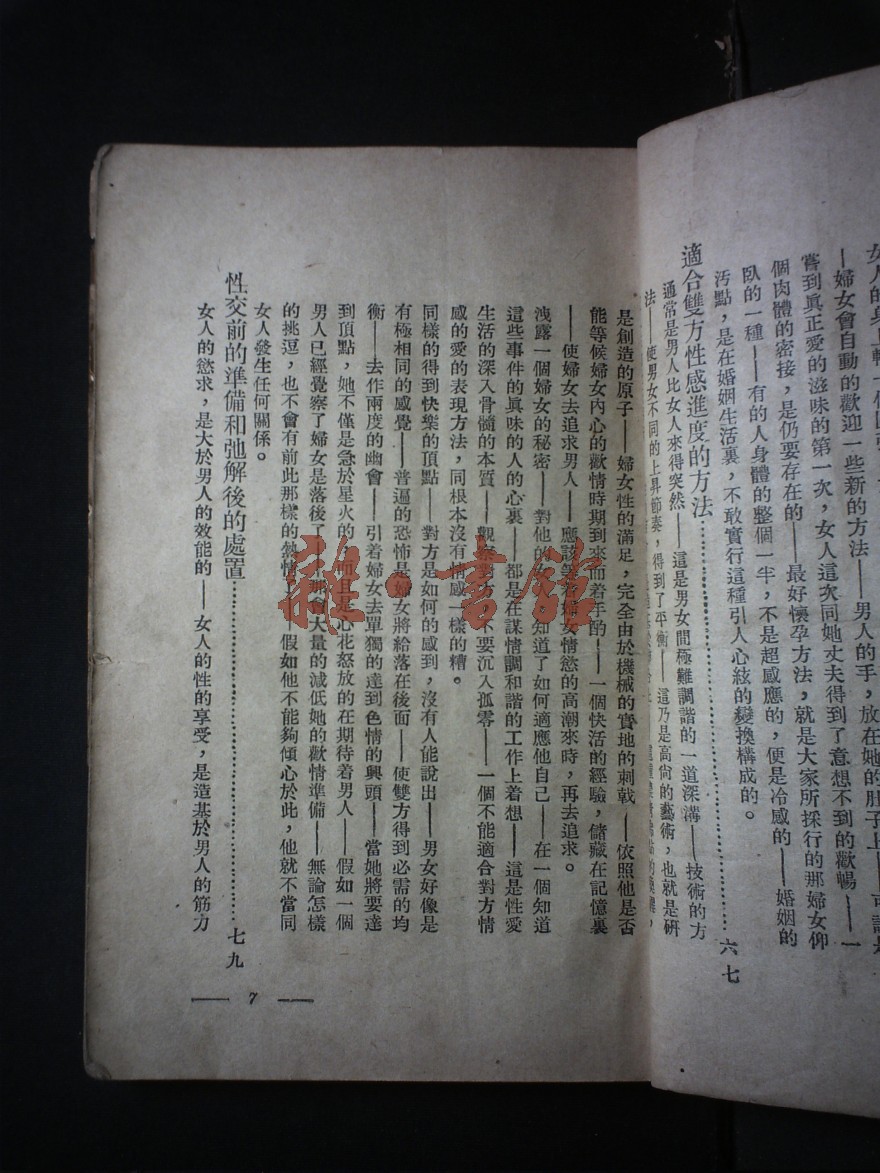 女人的身上
—婦女會自動的歡迎一些新的方法——男人的手，放在她的肚子上——可說是
嘗到真正愛的滋味的第一次，女人這次同她丈夫得到了意想不到的歡暢——一
個肉體的密接，是仍要存在的——最好懷孕方法，就是大家所採行的那婦女仰
臥的一種——有的人身體的整個一半，不是超感應的，便是冷感的——婚姻的
汚點，是在婚姻生活裏，不敢實行這種引人心絃的變換構成的。
適合雙方性感進度的方法……………………六七
通常是男人比女人來得突然——這是男女間極難調諧的一道深溝——技術的方
法——使男女不同的上昇節奏，得到了平衡——這乃是高尙的藝術，也就是硏
是創造的原子——婦女性的滿足，完全由於機械的實地的刺戟——依照他是否
能等候婦女內心的歡情時期到來而着手酌——一個快活的經驗，儲藏在記憶裏
——使婦女去追求男人——應該等着婦女情慾的高潮來時，再去追求。
洩露一個婦女的秘密——對他的女人知道了如何適應他自己——在一個知道
這些事件的眞味的人的心裏——都是在謀情調和諧的工作上着想——這是性愛
生活的深入骨髓的本質——觀察對方，不要沉入孤零——一個不能適合對方情
感的愛的表現方法，同根本沒有情感一樣的糟。
同樣的得到快樂的頂點——對方是如何的感到，沒有人能說出——男女好像是
有極相同的感覺——普遍的恐怖是婦女將給落在後面——使雙方得到必需的均
衡——去作兩度的幽會——引着婦女去單獨的達到色情的興頭——當她將要達
到頂點，她不僅是急於星火的，而且是心花怒放的在期待着男人——假如一個
男人已經覺察了婦女是落後了，那會大量的減低她的歡情準備——無論怎樣
的挑逗，也不會有前此那樣的熱情——假如他不能夠傾心於此，他就不當同
女人發生任何關係。
性交前的準備和弛解後的處置……………………七九
女人的慾求，是大於男人的效能的——女人的性的享受，是造基於男人的筋力
—— 7 ——
雜·書館